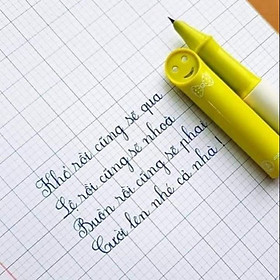 Khổ rồi cũng sẽ qua
Lệ rồi cũng sẽ nhoà
Buồn rồi cũng sẽ phai
Cười lên nhé cả nhà !